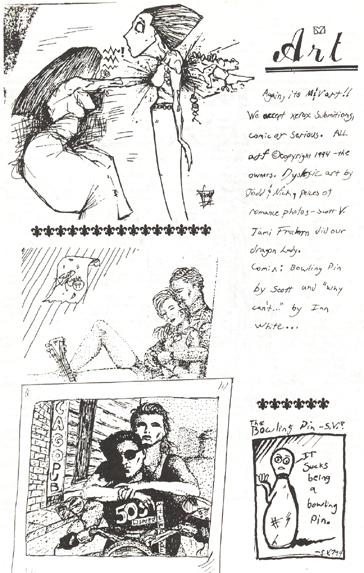 Art
Again, its MiVart!!
We accept xerox submitions,
comic or serious. All
art ©copyright 1994-the
owners. Dyslexic art by
Todd & Nicky, peices of
romance photos-Scott V.
Tami did our
dragon Lady.
Comix: Bowling Pin
by Scott and "Why
can't..." by Inn
White...
The
Bowling Pin -S.V.
IT
Sucks
being
a
bowling
Pin.
#
-S.V.94
CASOPLE
505